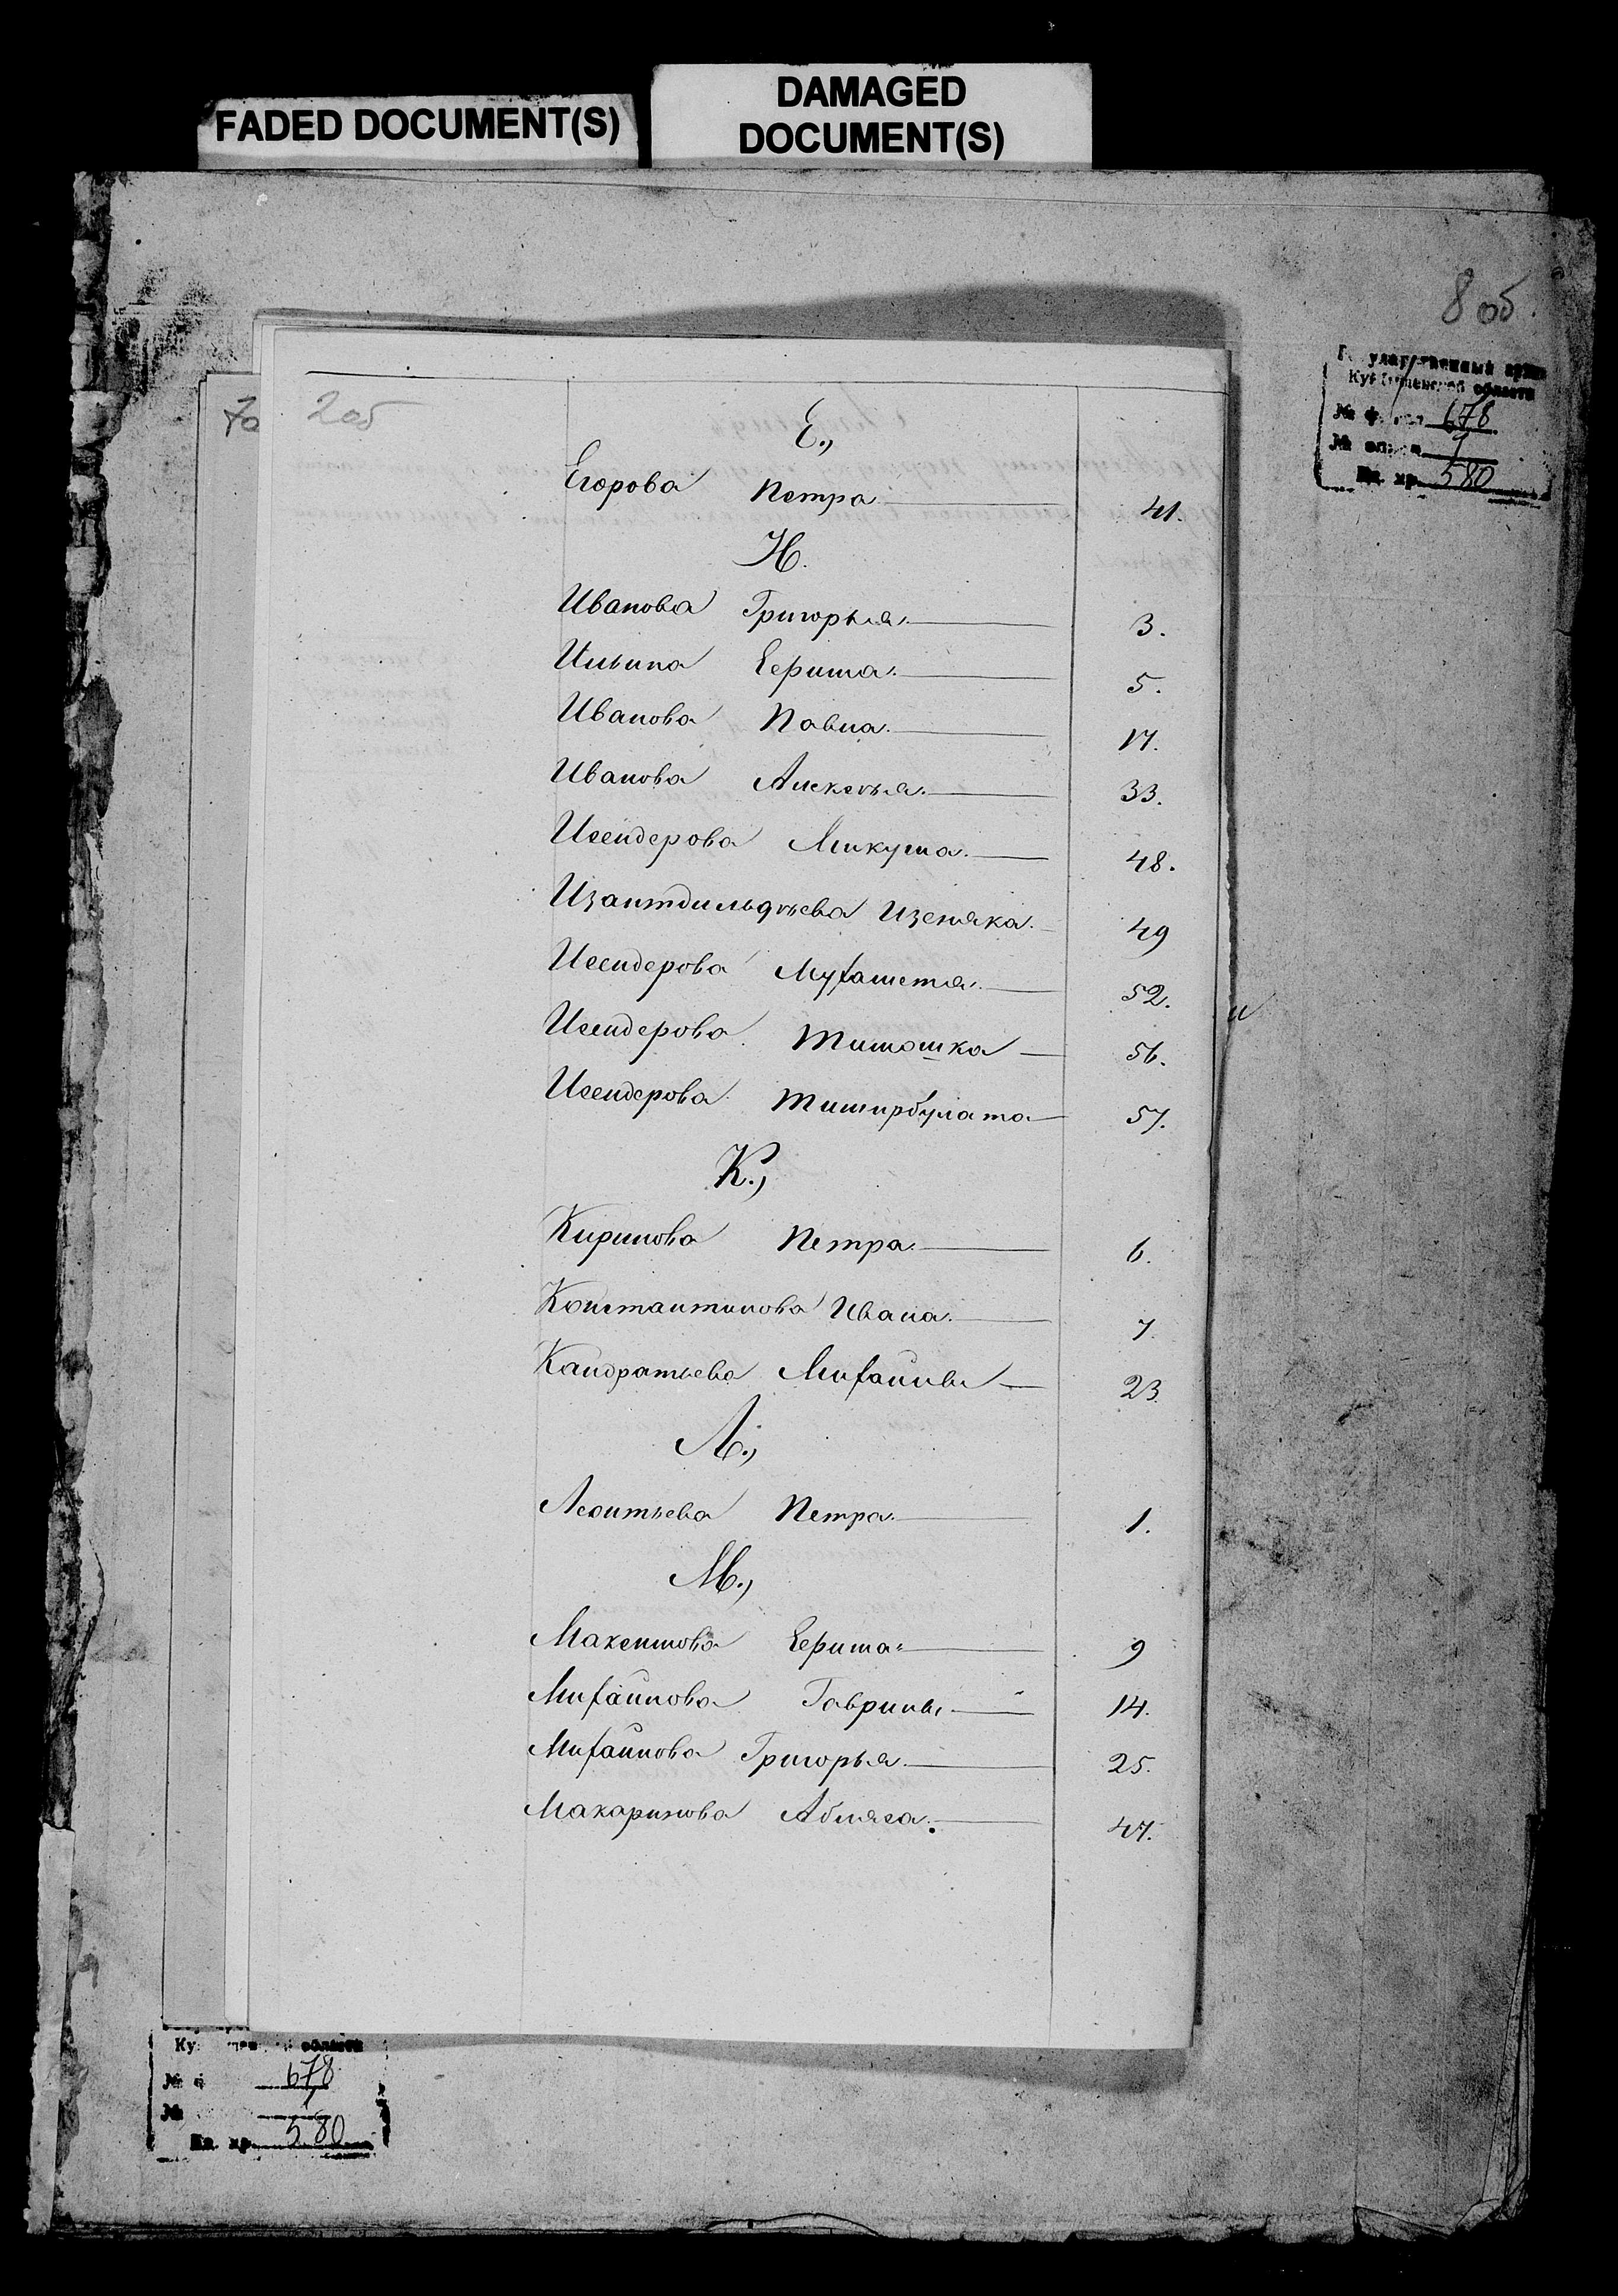 FADED DOCUMENT(S)
DAMAGED
DOCUMENT(S)
8 об.
Кур области
№ 678
№ 1
Ед. хр. 580
2об
Е.,
Егорова Петра 41.
И.
Иванова Григорья 3.
Ильина Сергииа 5.
Иванова Павла 17.
Иванова Алексея 33.
Исендерова Микуша 48.
Изантдильдѣева Изеняка 49
Исендерова Мухаметя 52.
Исендерова Тимошка 56.
Исендерова Тимирбулата 57.
К.,
Кирилова Петра 6.
Константинова Ивана 7.
Кандратьева Михайлы 23.
Л.,
Леонтьева Петра 1.
М.,
Максимова 9
Михайлова Гаврилы 14.
Михайлова Григорья 25.
Макаримова Абляса 47.
области
№ 678
№ 1
Ед. хр. 580